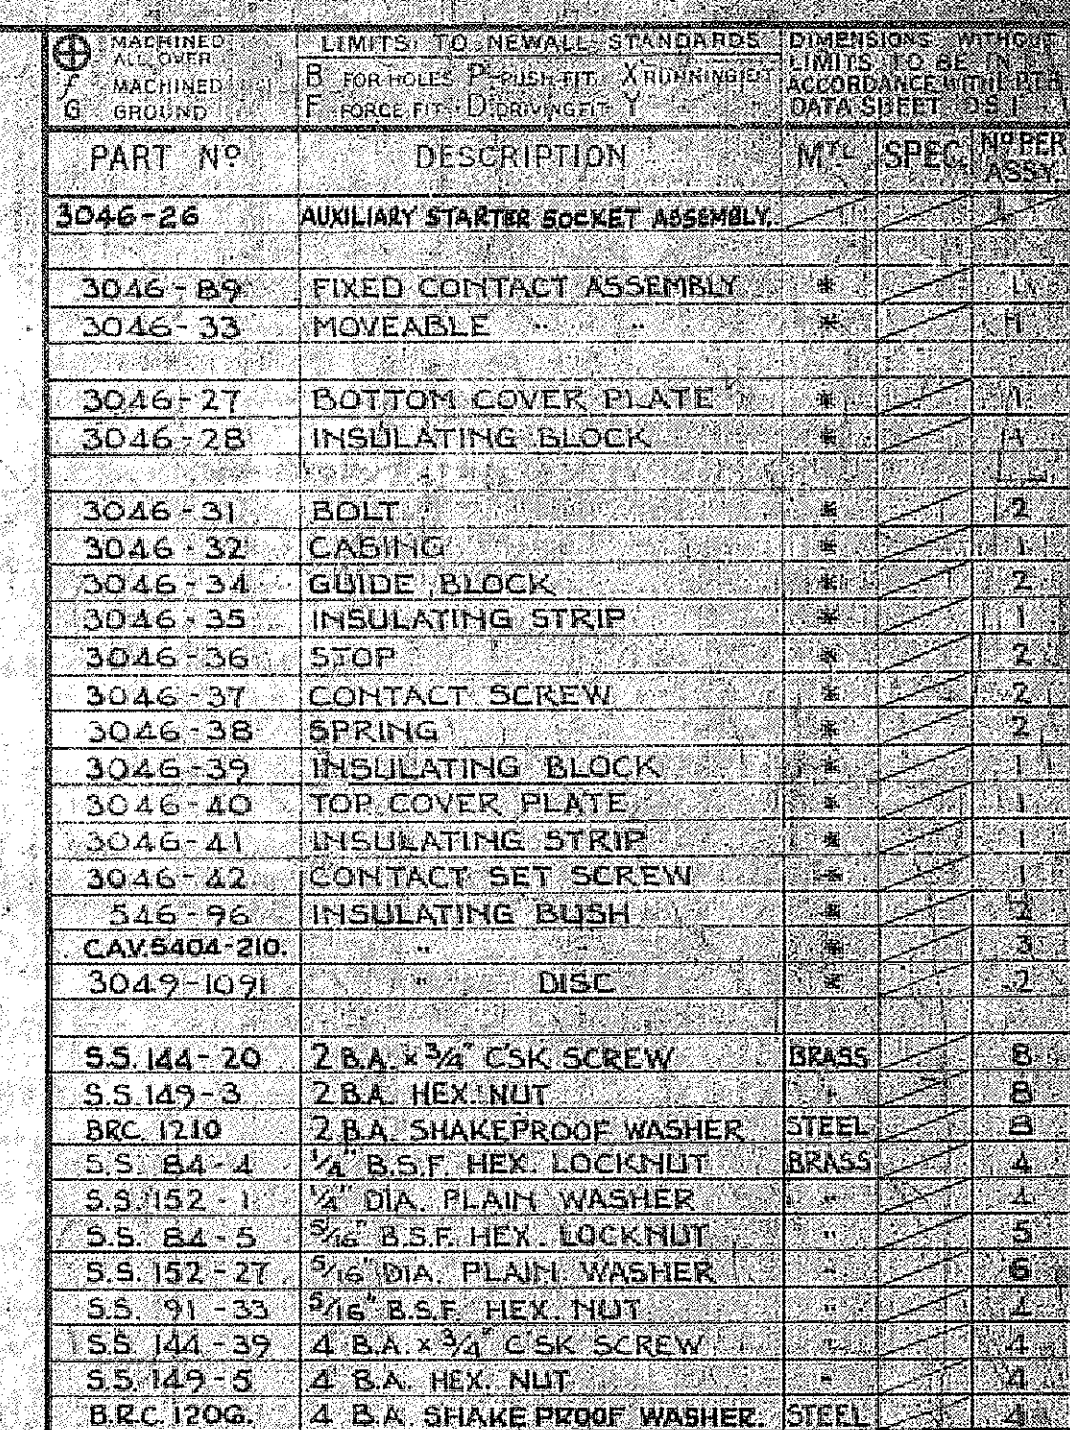 ⊕ MACHINED ALL OVER
f MACHINED
G GROUND
LIMITS TO NEWALL STANDARDS
B FOR HOLES P PUSH FIT X RUNNING FIT
F FORCE FIT D DRIVING FIT Y
DIMENSIONS WITHOUT
LIMITS TO BE IN
ACCORDANCE WITH
DATA SHEET D.S.1
PART Nº DESCRIPTION MTL SPEC. Nº PER ASSY.
3046-26 AUXILIARY STARTER SOCKET ASSEMBLY.
3046-89 FIXED CONTACT ASSEMBLY * 1
3046-33 MOVEABLE " " *
3046-27 BOTTOM COVER PLATE * 1
3046-28 INSULATING BLOCK *
3046-31 BOLT * 2
3046-32 CASING * 1
3046-34 GUIDE BLOCK * 2
3046-35 INSULATING STRIP * 1
3046-36 STOP * 2
3046-37 CONTACT SCREW * 2
3046-38 SPRING * 2
3046-39 INSULATING BLOCK * 1
3046-40 TOP COVER PLATE * 1
3046-41 INSULATING STRIP * 1
3046-42 CONTACT SET SCREW * 1
546-96 INSULATING BUSH *
C.A.V.5404-210. " " * 3
3049-1091 " DISC * 2
S.S. 144-20 2 B.A. x 3/4" C'SK SCREW BRASS 8
S.S. 149-3 2 B.A. HEX. NUT " 8
BRC. 1210 2 B.A. SHAKEPROOF WASHER STEEL 8
S.S. 84-4 1/4" B.S.F. HEX. LOCKNUT BRASS 4
S.S. 152-1 1/4" DIA. PLAIN WASHER "
S.S. 84-5 5/16" B.S.F. HEX. LOCKNUT " 5
S.S. 152-27 5/16" DIA. PLAIN WASHER " 6
S.S. 91-33 5/16" B.S.F. HEX. NUT "
S.S. 144-39 4 B.A. x 3/4" C'SK SCREW " 4
S.S. 149-5 4 B.A. HEX. NUT " 4
B.R.C. 1206. 4 B.A. SHAKEPROOF WASHER. STEEL 4